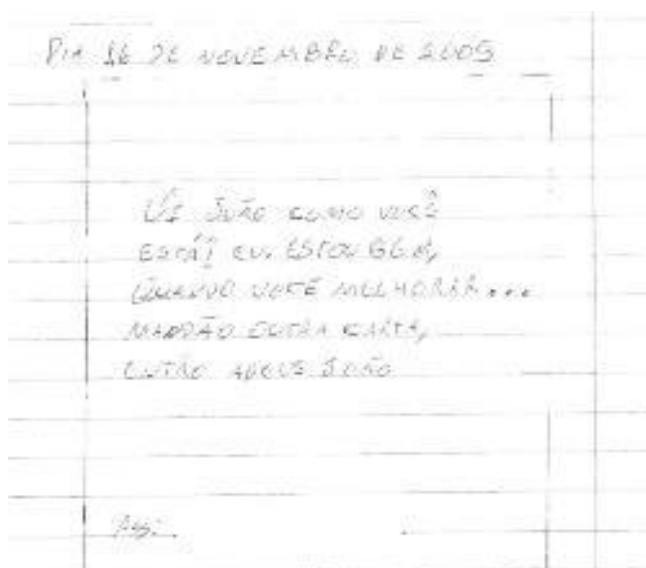 DIA 16 DE NOVEMBRO DE 2005
OI JOÃO COMO VOCÊ
ESTÁ? EU ESTOU BEM,
QUANDO VOCÊ MELHORAR...
MANDÃO OUTRA CARTA,
ENTÃO ADEUS JOÃO
Ass: